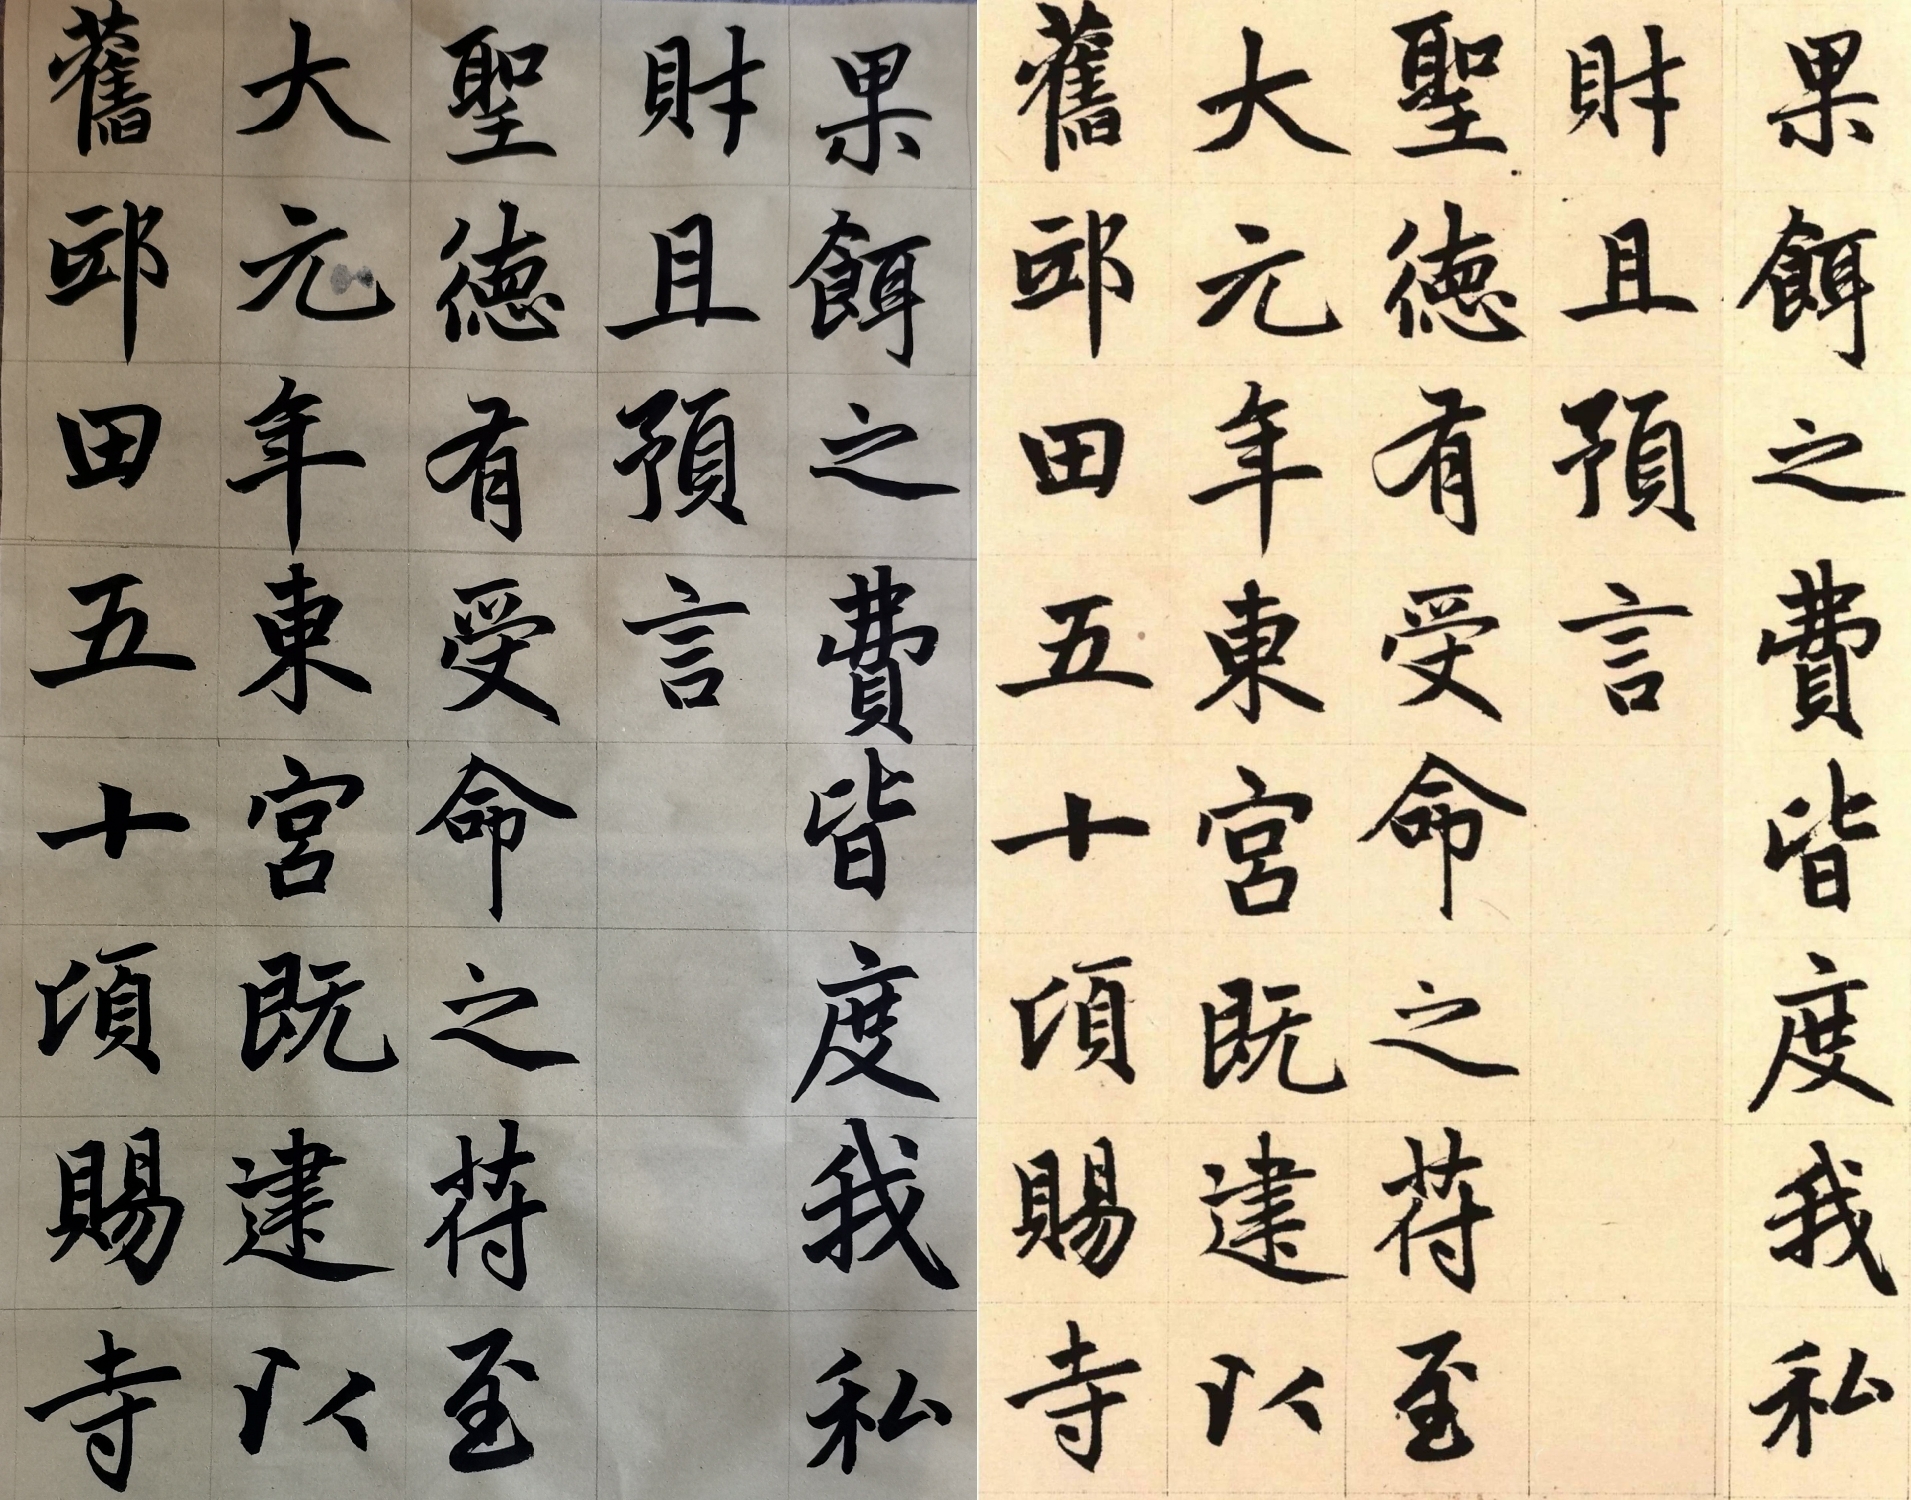 果餌之費皆度我私
財且預言
聖德有受命之苻至
大元年東宮既建以
舊邸田五十頃賜寺
果餌之費皆度我私
財且預言
聖德有受命之苻至
大元年東宮既建以
舊邸田五十頃賜寺